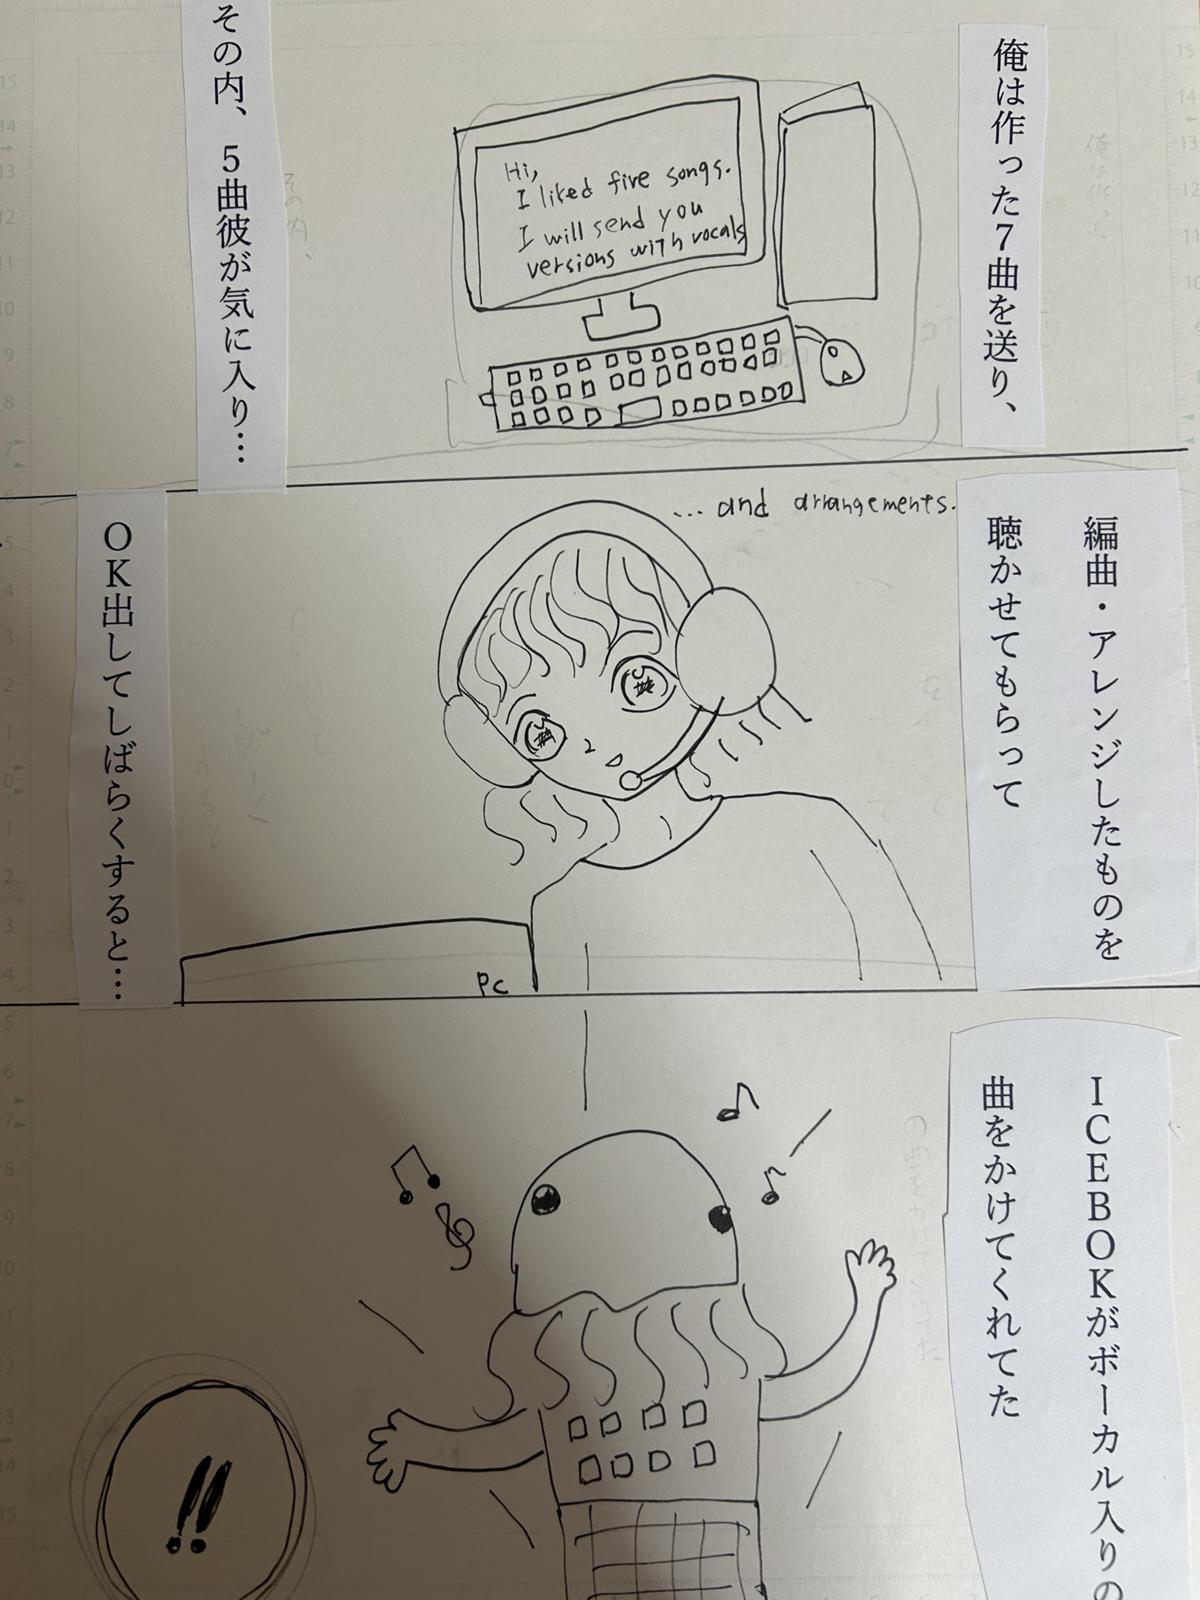 俺は作った7曲を送り、
Hi,
I liked five songs.
I will send you
versions with vocals
その内、5曲彼が気に入り…
...and arrangements.
編曲・アレンジしたものを
聴かせてもらって
PC
OK出してしばらくすると…
ICEBOKがボーカル入りの
曲をかけてくれてた
!!